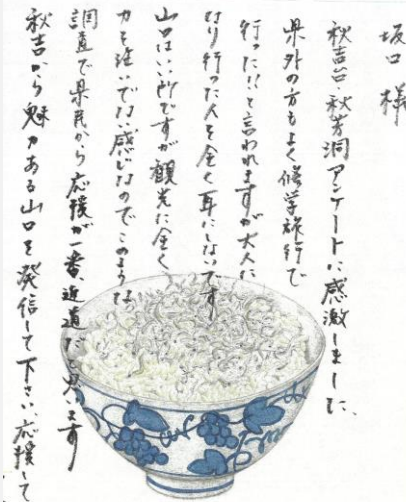 坂口 様
秋吉台・秋芳洞アンケートに感激しました、
県外の方もよく修学旅行で
行った!!と言われますが大人に
なり行った人を全く耳にしないです
山口はいい所ですが観光に全く、
力を注いでない感じなのでこのような
調査で県民から応援が一番、近道だと思います
秋吉から魅力ある山口を発信して下さい、応援して